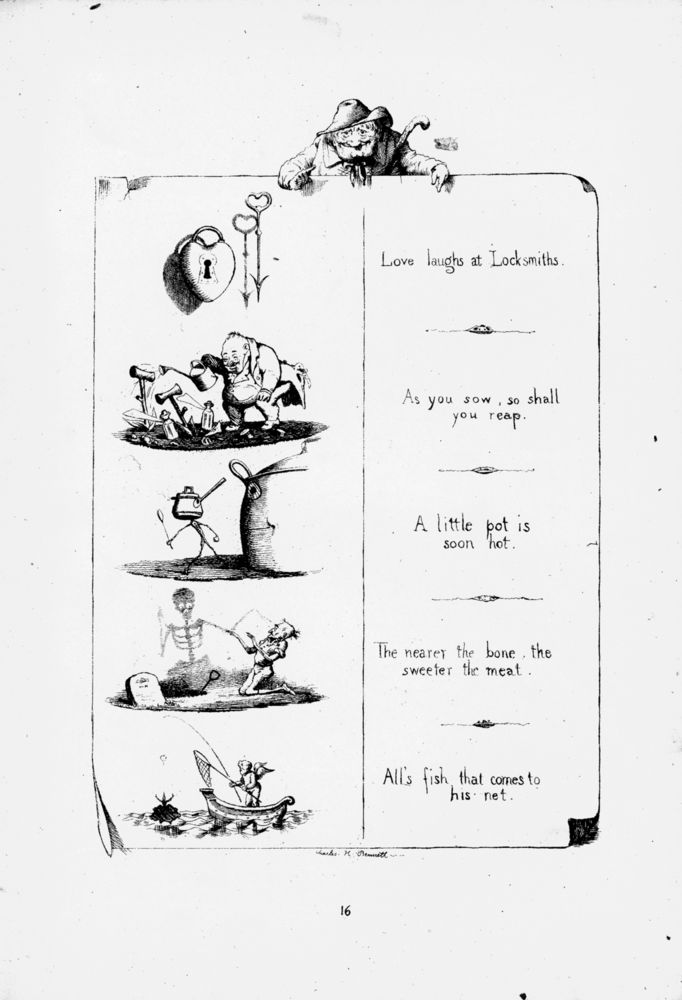 Love laughs at Locksmiths.
As you sow, so shall
you reap.
A little pot is
soon hot.
The nearer the bone, the
sweeter the meat.
All's fish that comes to
his net.
Charles H. Bennett
16